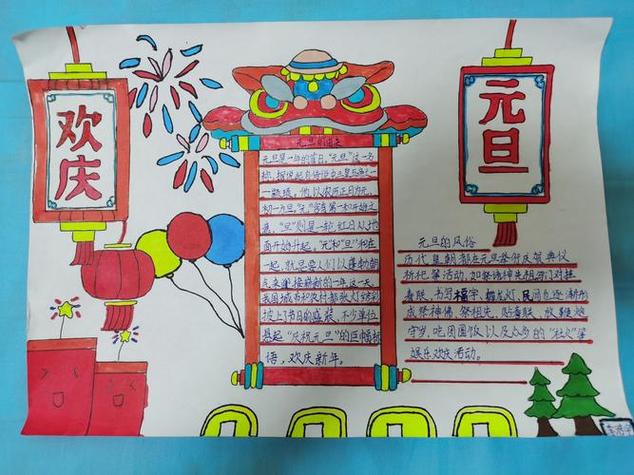 欢庆
元旦
元旦的由来
元旦是一年的首日,"元旦"这一名
称,据说起自传说中三皇五帝之
一颛顼,他以农历正月为元,
初一为旦,"元"有第一和开始之
意,"旦"则是一轮红日从地
面开始升起,"元"和"旦"和在
一起,就是要人们以蓬勃朝
气来迎接崭新的一年这一天
我国城市和农村都张灯结彩
披上节日的盛装,不少单位
悬起"庆祝元旦"的巨幅标
语,欢庆新年。
元旦的风俗
历代皇朝都在元旦举行庆贺典仪
祈祀等活动,如祭诸神先祖,写门对挂
春联,书写福字、舞龙灯,民间也逐渐形
成祭神佛、祭祖先、贴春联、放鞭炮
守岁、吃团圆饭以及众多的"社火"等
娱乐欢庆活动。